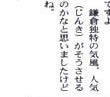 ですよ
鎌倉独特の気風、人気
（じんき）がそうさせる
のかなと思いましたけど
ね。